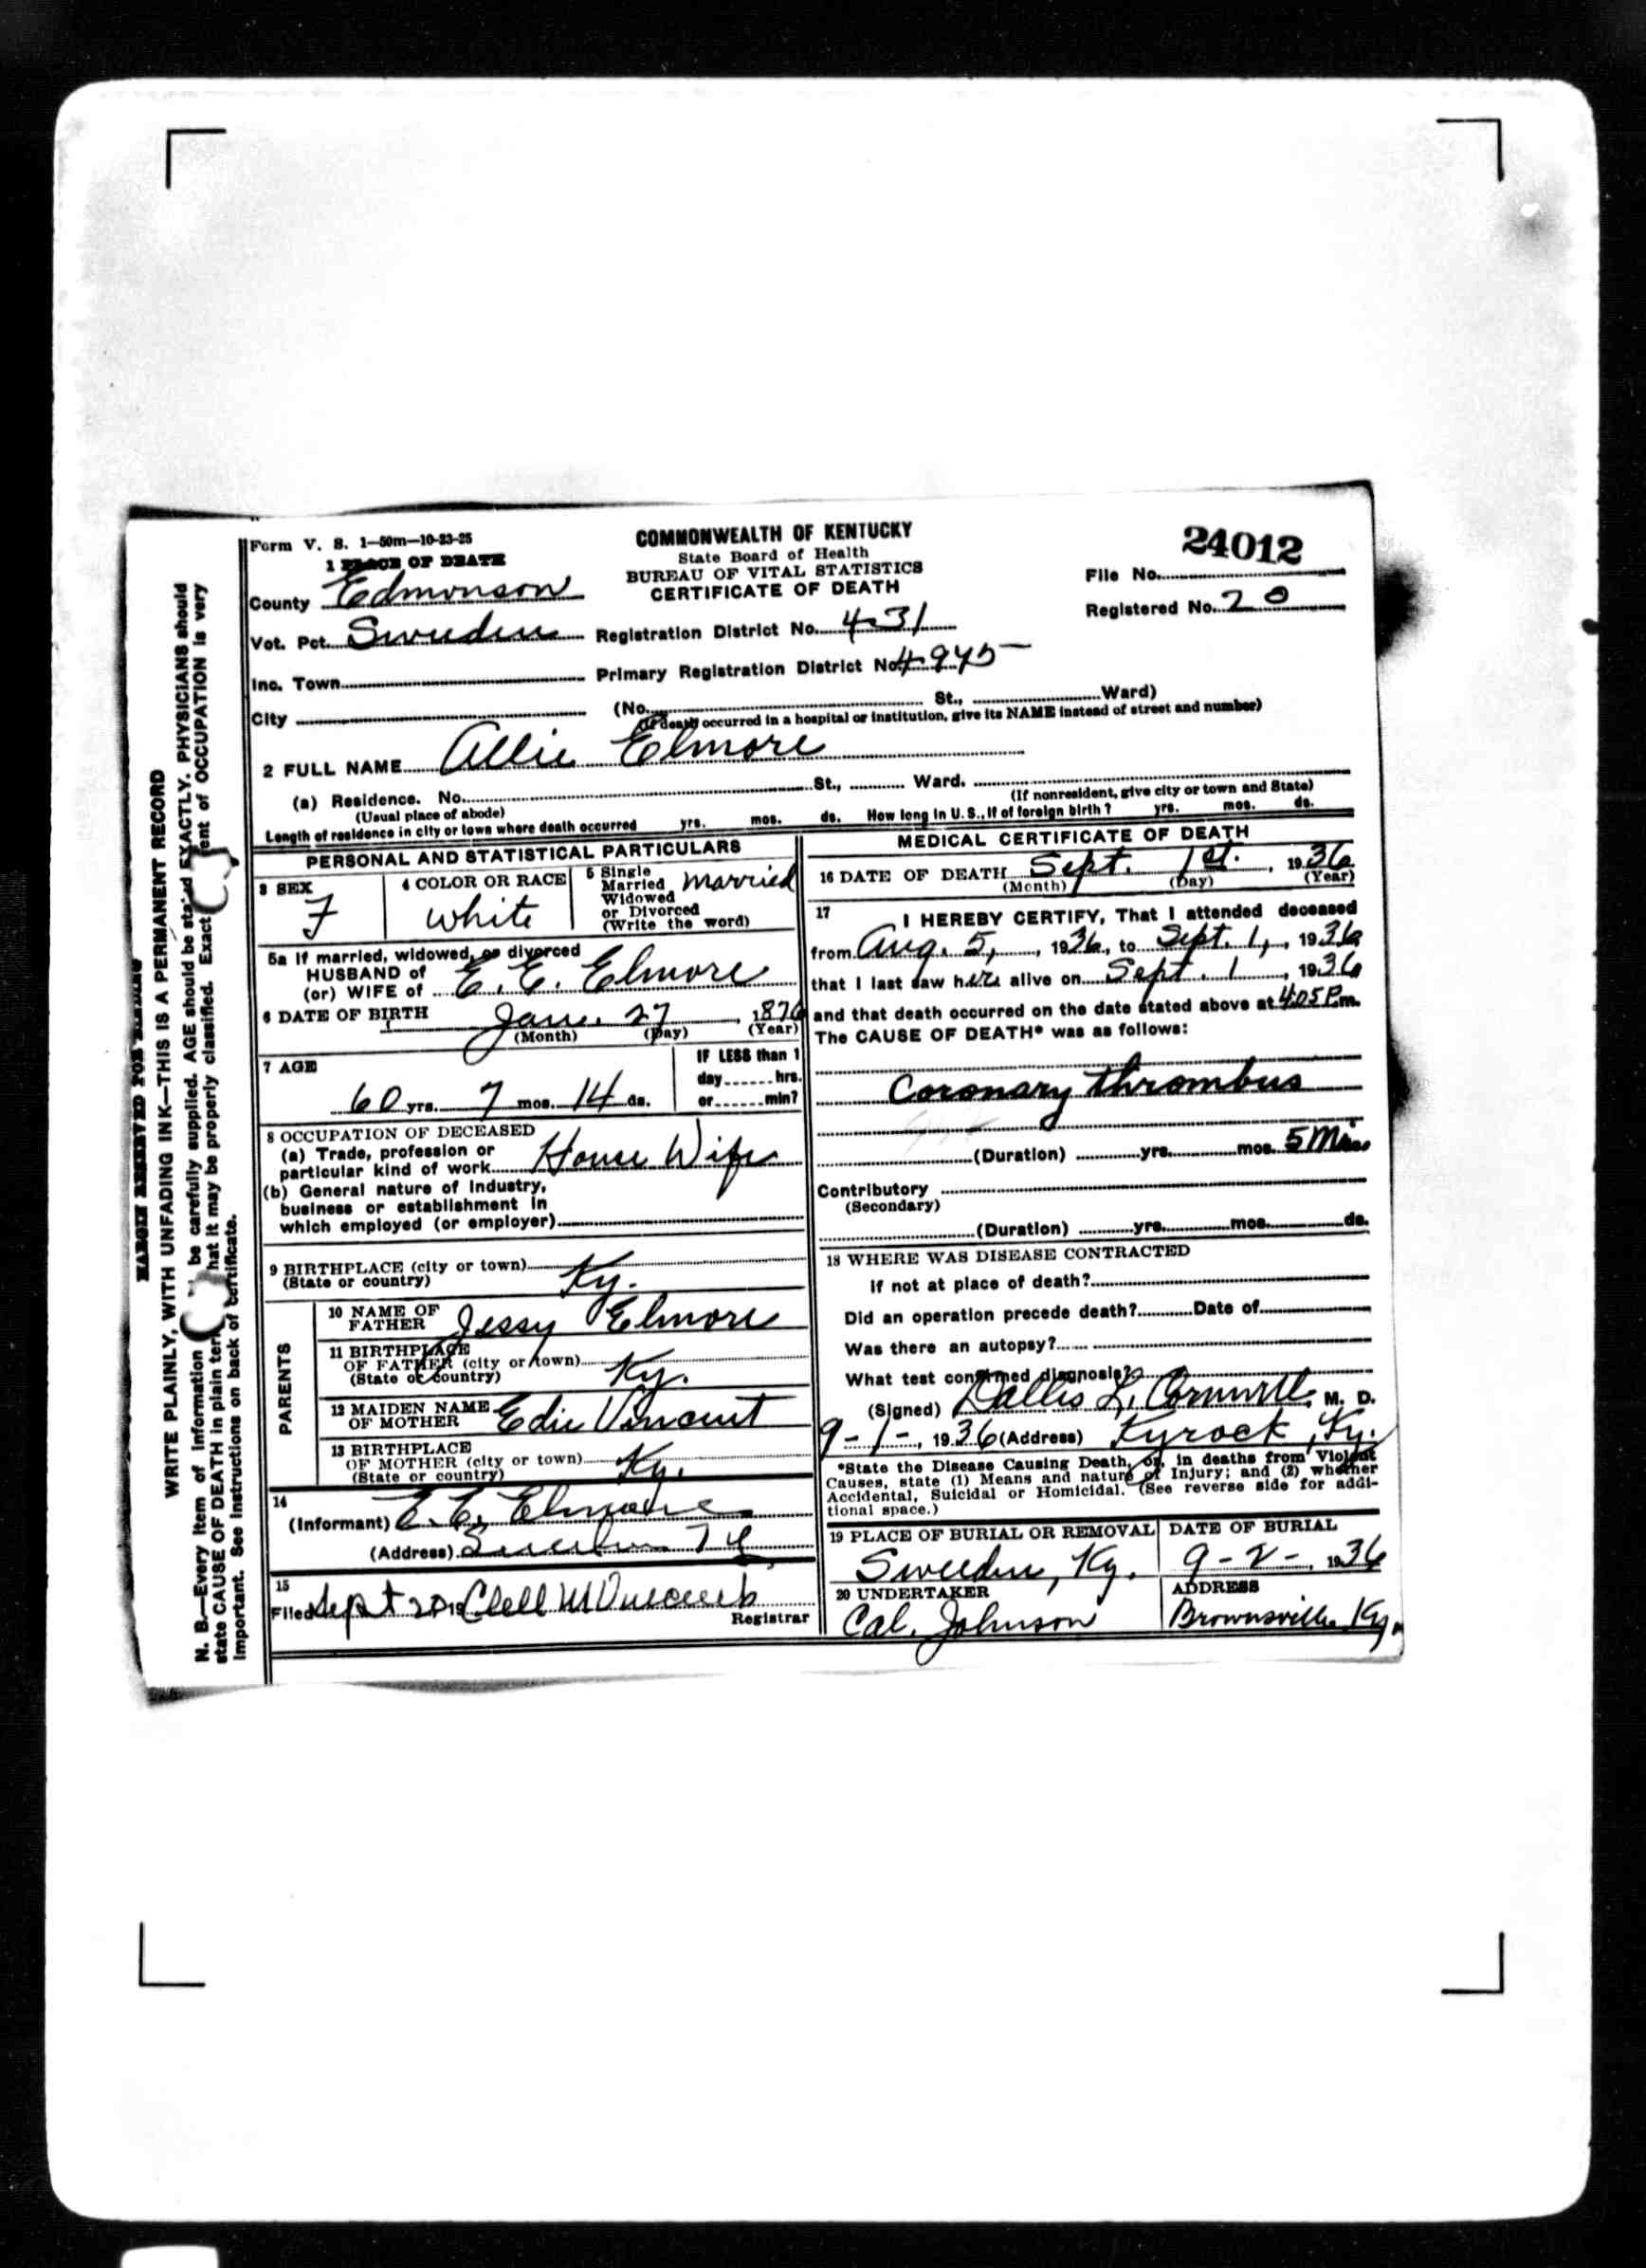 MARGIN RESERVED FOR BINDING
WRITE PLAINLY, WITH UNFADING INK—THIS IS A PERMANENT RECORD
N. B.—Every item of information be carefully supplied. AGE should be stated EXACTLY. PHYSICIANS should
state CAUSE OF DEATH in plain ter hat it may be properly classified. Exact ent of OCCUPATION is very
important. See instructions on back of certificate.
Form V. S. 1—50m—10-23-25
1 PLACE OF DEATH
County Edmonson
Vot. Pct. Sweeden
Inc. Town
City
COMMONWEALTH OF KENTUCKY
State Board of Health
BUREAU OF VITAL STATISTICS
CERTIFICATE OF DEATH
Registration District No. 431
Primary Registration District No. 4945
24012
File No.
Registered No. 20
(No. St., Ward)
(If death occurred in a hospital or institution, give its NAME instead of street and number)
2 FULL NAME Allie Elmore
(a) Residence. No. St., Ward.
(Usual place of abode) (If nonresident, give city or town and State)
Length of residence in city or town where death occurred yrs. mos. ds. How long in U. S., if of foreign birth? yrs. mos. ds.
PERSONAL AND STATISTICAL PARTICULARS
3 SEX
F
4 COLOR OR RACE
White
5 Single
Married
Widowed
or Divorced
(Write the word)
married
5a If married, widowed, or divorced
HUSBAND of
(or) WIFE of E. E. Elmore
6 DATE OF BIRTH Jan. 27, 1876
(Month) (Day) (Year)
7 AGE
60 yrs. 7 mos. 14 ds.
IF LESS than 1
day hrs.
or min?
8 OCCUPATION OF DECEASED
(a) Trade, profession or
particular kind of work House Wife
(b) General nature of industry,
business or establishment in
which employed (or employer)
9 BIRTHPLACE (city or town)
(State or country) Ky.
PARENTS
10 NAME OF
FATHER Jessy Elmore
11 BIRTHPLACE
OF FATHER (city or town)
(State or country) Ky.
12 MAIDEN NAME
OF MOTHER Edie Vincent
13 BIRTHPLACE
OF MOTHER (city or town)
(State or country) Ky.
14
(Informant) E. E. Elmore
(Address) Ky
15
Filed Sept 20 19 Clell
Registrar
MEDICAL CERTIFICATE OF DEATH
16 DATE OF DEATH Sept. 1st., 1936
(Month) (Day) (Year)
17 I HEREBY CERTIFY, That I attended deceased
from Aug. 5, 1936, to Sept. 1, 1936
that I last saw her alive on Sept. 1, 1936
and that death occurred on the date stated above at 4:05 P.m.
The CAUSE OF DEATH* was as follows:
Coronary thrombus
(Duration) yrs. mos. 5 Min.
Contributory
(Secondary)
(Duration) yrs. mos. ds.
18 WHERE WAS DISEASE CONTRACTED
If not at place of death?
Did an operation precede death? Date of
Was there an autopsy?
What test confirmed diagnosis?
(Signed) Dallis L. Cornwell, M. D.
9-1-, 1936 (Address) Kyrock, Ky.
*State the Disease Causing Death, or, in deaths from Violent
Causes, state (1) Means and nature of Injury; and (2) whether
Accidental, Suicidal or Homicidal. (See reverse side for addi-
tional space.)
19 PLACE OF BURIAL OR REMOVAL
Sweeden, Ky.
DATE OF BURIAL
9-2-, 1936
20 UNDERTAKER
Cal. Johnson
ADDRESS
Brownsville Ky.